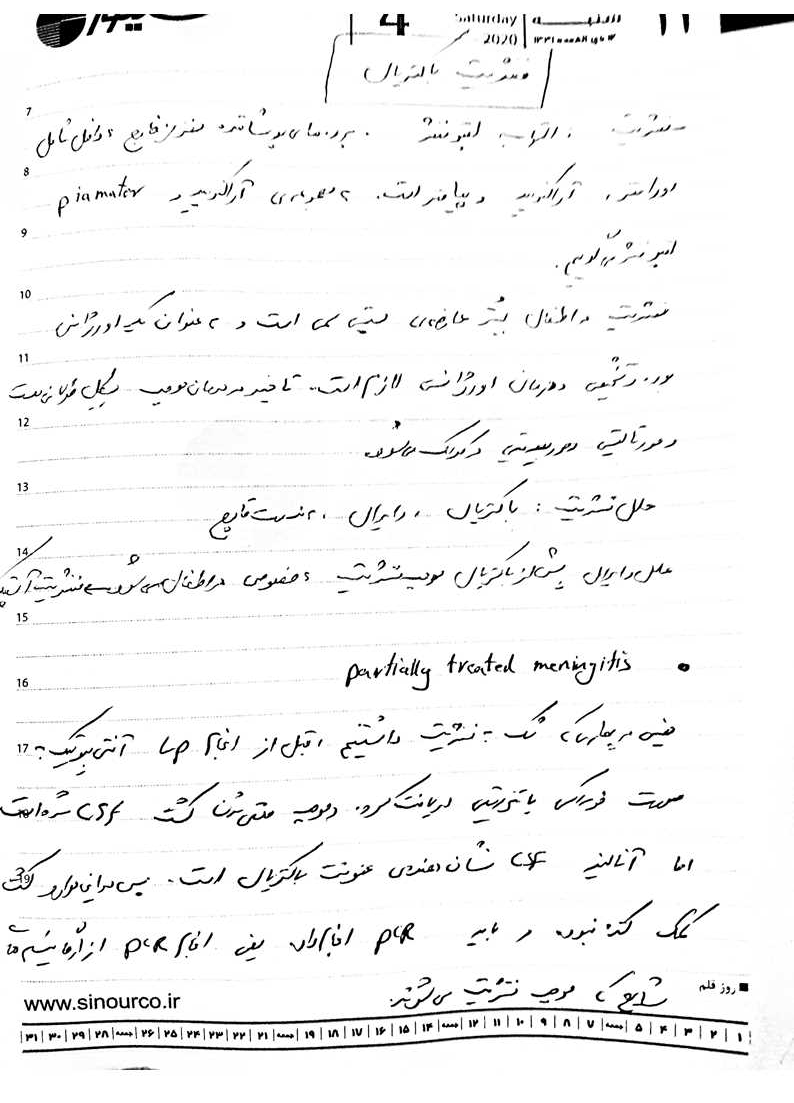 4
Saturday
2020
شنبه
مننژیت باکتریال
7
مننژیت ، التهاب لپتومننژ . پرده‌های پوشاننده مغز از خارج به داخل شامل
8
دورامتر ، آراکنوئید و پیامتر است. به مجموعه‌ی آراکنوئید و piamater
9
لپتومننژ می‌گوییم.
10
مننژیت در اطفال بیشتر عارضه‌ی سپتی سمی است و به عنوان یک اورژانس
11
بوده و تشخیص و درمان اورژانسی لازم است. تاخیر در درمان موجب
12
و مورتالیتی و موربیدیتی می‌شود
13
علل مننژیت : باکتریال ، وایرال ، به ندرت قارچ
14
علل وایرال بیش از باکتریال موجب مننژیت به خصوص در اطفال می‌شود مننژیت
15
16
• partially treated meningitis
17
یعنی در بیماری که شک به مننژیت داشتیم ، قبل از انجام LP آنتی بیوتیک به
صورت خوراکی یا تزریقی دریافت کرده و موجب منفی شدن کشت CSF شده است
اما آنالیز CSF نشان دهنده‌ی عفونت باکتریال است. پس در این موارد کشت
کمک کننده نبوده و باید PCR انجام داد. یعنی انجام PCR از
شایع که موجب مننژیت می‌شوند.
■ روز قلم
www.sinourco.ir
۱ | ۲ | ۳ | ۴ | ۵ | جمعه | ۷ | ۸ | ۹ | ۱۰ | ۱۱ | ۱۲ | جمعه | ۱۴ | ۱۵ | ۱۶ | ۱۷ | ۱۸ | ۱۹ | جمعه | ۲۱ | ۲۲ | ۲۳ | ۲۴ | ۲۵ | ۲۶ | جمعه | ۲۸ | ۲۹ | ۳۰ | ۳۱